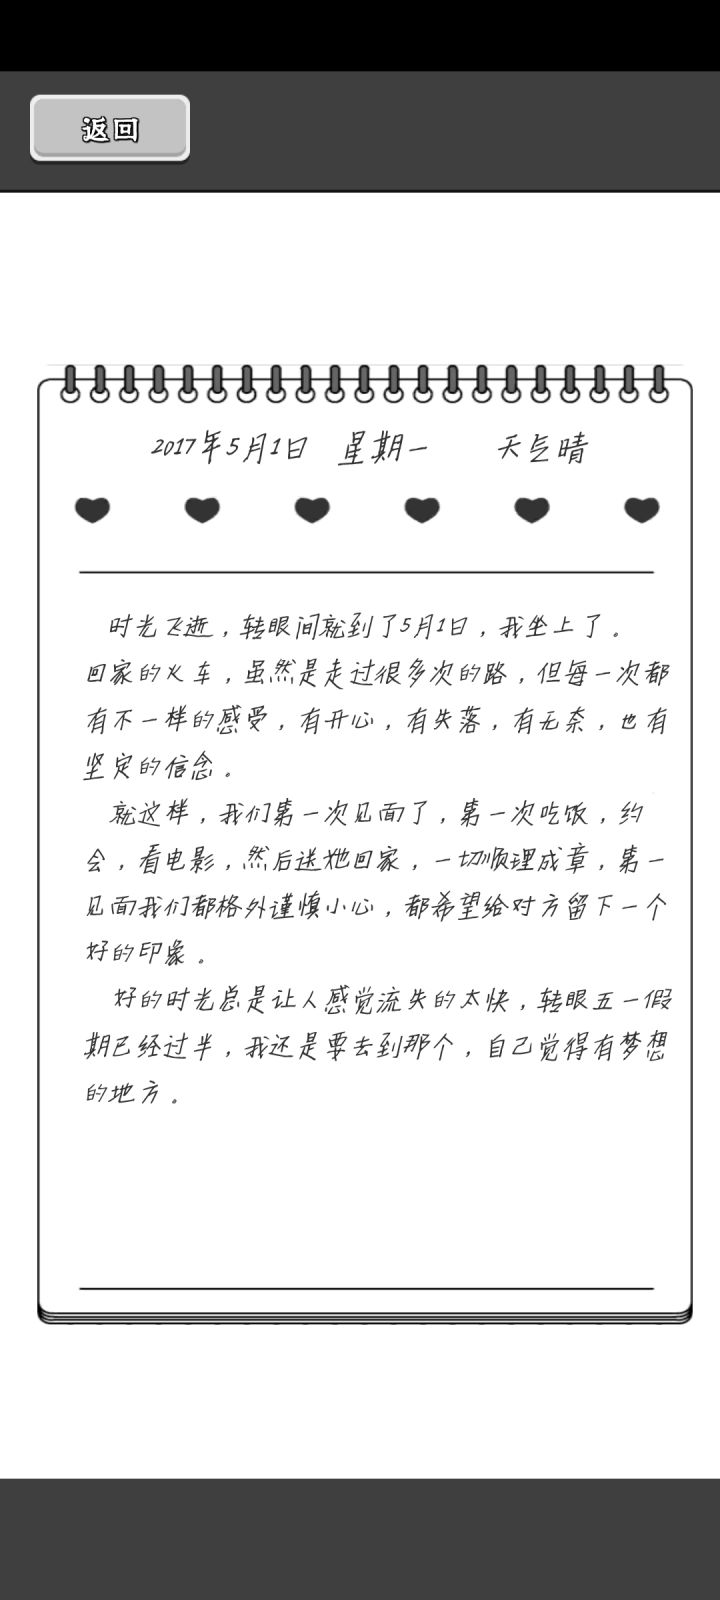 返回
2017年5月1日 星期一 天气晴
时光飞逝，转眼间就到了5月1日，我坐上了。
回家的火车，虽然是走过很多次的路，但每一次都
有不一样的感受，有开心，有失落，有无奈，也有
坚定的信念。
就这样，我们第一次见面了，第一次吃饭，约
会，看电影，然后送她回家，一切顺理成章，第一
见面我们都格外谨慎小心，都希望给对方留下一个
好的印象。
好的时光总是让人感觉流失的太快，转眼五一假
期已经过半，我还是要去到那个，自己觉得有梦想
的地方。